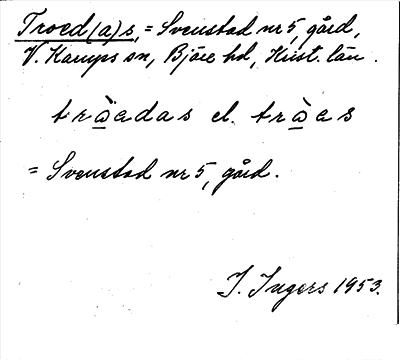 Troed(a)s, = Svenstad nr 5, gård,
V. Karups sn, Bjäre hd, Krist. län.
tràadas el. tràas
= Svenstad nr 5, gård.
I. Ingers 1953.